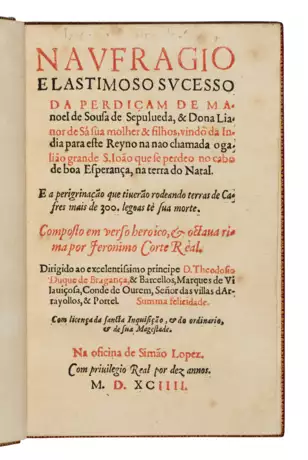 NAVFRAGIO
E LASTIMOSO SVCESSO
DA PERDIÇAM DE MA-
noel de Sousa de Sepulueda, & Dona Lia-
nor de Sá sua molher & filhos, vindo da In-
dia para este Reyno na nao chamada o ga-
lião grande S. Ioão que se perdeo no cabo
de boa Esperança, na terra do Natal.
E a perigrinação que tiuerão rodeando terras de Ca-
fres mais de 300. legoas tè sua morte.
Composto em verso heroico, & octaua ri-
ma por Ieronimo Corte Real.
Dirigido ao excelentissimo principe D. Theodosio
Duque de Bragança, & Barcellos, Marques de Vi-
lauiçosa, Conde de Ourem, Señor das villas d'Ar-
rayollos, & Portel. Summa felicidade.
Com licença da sancta Inquisição, & do ordinario,
& de sua Magestade.
Na oficina de Simão Lopez.
Com priuilegio Real por dez annos.
M. D. XCIIII.